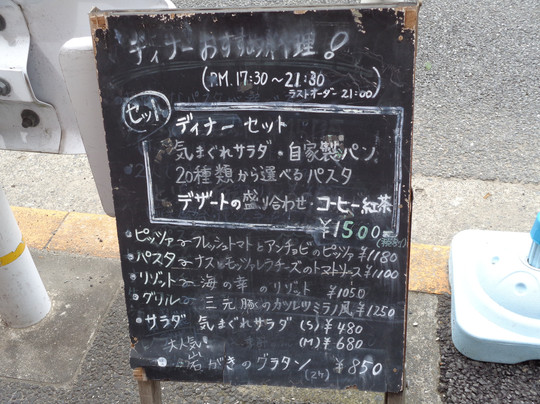 ディナーおすすめ料理!
(P.M. 17:30～21:30
ラストオーダー 21:00)
セット
ディナーセット
気まぐれサラダ・自家製パン
20種類から選べるパスタ
デザートの盛り合わせ・コーヒー紅茶
¥1500
(税別)
・ピッツァ～フレッシュトマトとアンチョビのピッツァ ¥1180
・パスタ～ナスとモッツァレラチーズのトマトソース ¥1100
・リゾット～海の幸のリゾット ¥1050
・グリル～三元豚のカツレツミラノ風 ¥1250
・サラダ 気まぐれサラダ (S) ¥480
大人気! (M) ¥680
・岩がきのグラタン (2ケ) ¥850